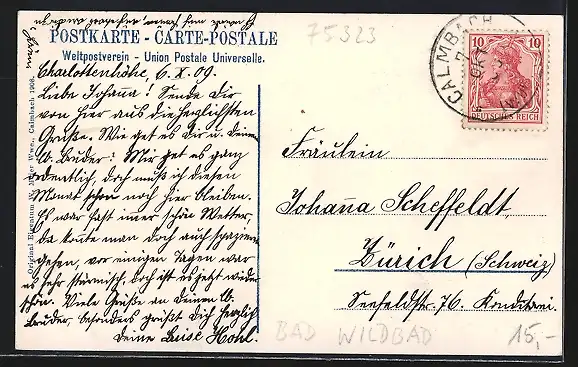 75323
POSTKARTE - CARTE-POSTALE
Weltpostverein - Union Postale Universelle.
Charlottenhöhe, 6. X. 09.
Liebe Johaña! Sende Dir
von hier aus die herzlichsten
Grüße. Wie get es Dir u. Deinem
Bruder? Mir get es ganz
ordentlich, doch muß ich diesen
Monat schon noch hier bleiben.
Es war fast imer schön Wetter,
da konte man doch auch spazieren
gehen, vor einigen Tagen war
es sehr stürmisch, doch ist es jetzt wieder
schön. Viele Grüße an Deinen
Bruder, besonders grüßt Dich herzlich
Deine Luise Hohl.
Original Eigentum W. Wwe., Calmbach 1908.
CALMBACH
10 10
DEUTSCHES REICH
Fräulein
Johaña Scheffeldt,
Zürich (Schweiz)
Seefeldstr. 76. Konditorei.
BAD WILDBAD
15,-